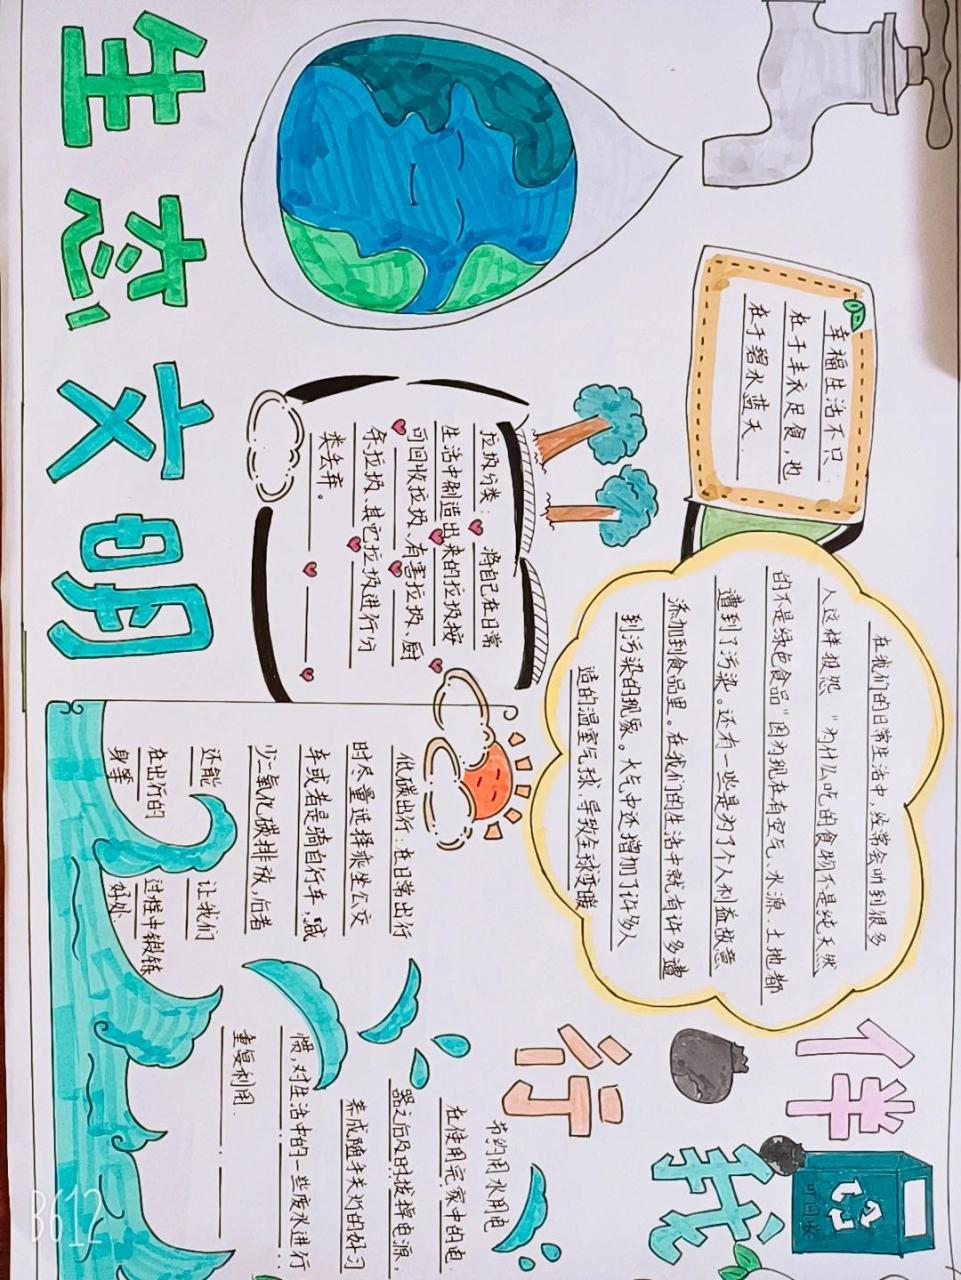 幸福生活不只
在于丰衣足食，也
在于碧水蓝天．
在我们的日常生活中，经常会听到很多
人这样报怨："为什么吃的食物不是纯天然
的不是绿色食品"因为现在有空气、水源、土地都
遭到了污染。还有一些是为了个人利益故意
添加到食品里。在我们的生活中就有许多遭
到污染的现象。大气中还增加了许多人
造的温室气候，导致全球变暖
伴
我
行
可回收
垃圾分类：将自己在日常
生活中制造出来的垃圾按
可回收垃圾、有害垃圾、厨
余垃圾、其它垃圾进行分
类丢弃。
低碳出行：在日常出行
时尽量选择乘坐公交
车或者是骑自行车，减
少二氧化碳排放，后者
还能让我们
在出行的过程中锻炼
身体好处
节约用水用电
在使用完家中的电
器之后及时拔掉电源，
养成随手关灯的好习
惯，对生活中的一些废水进行
重复利用．
生态文明
B612